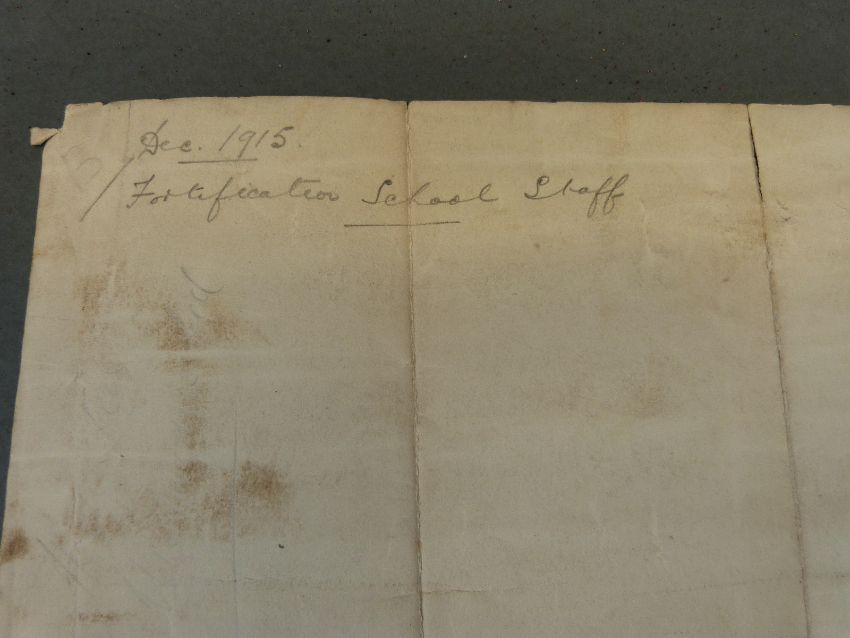 Dec. 1915.
Fortification School Staff